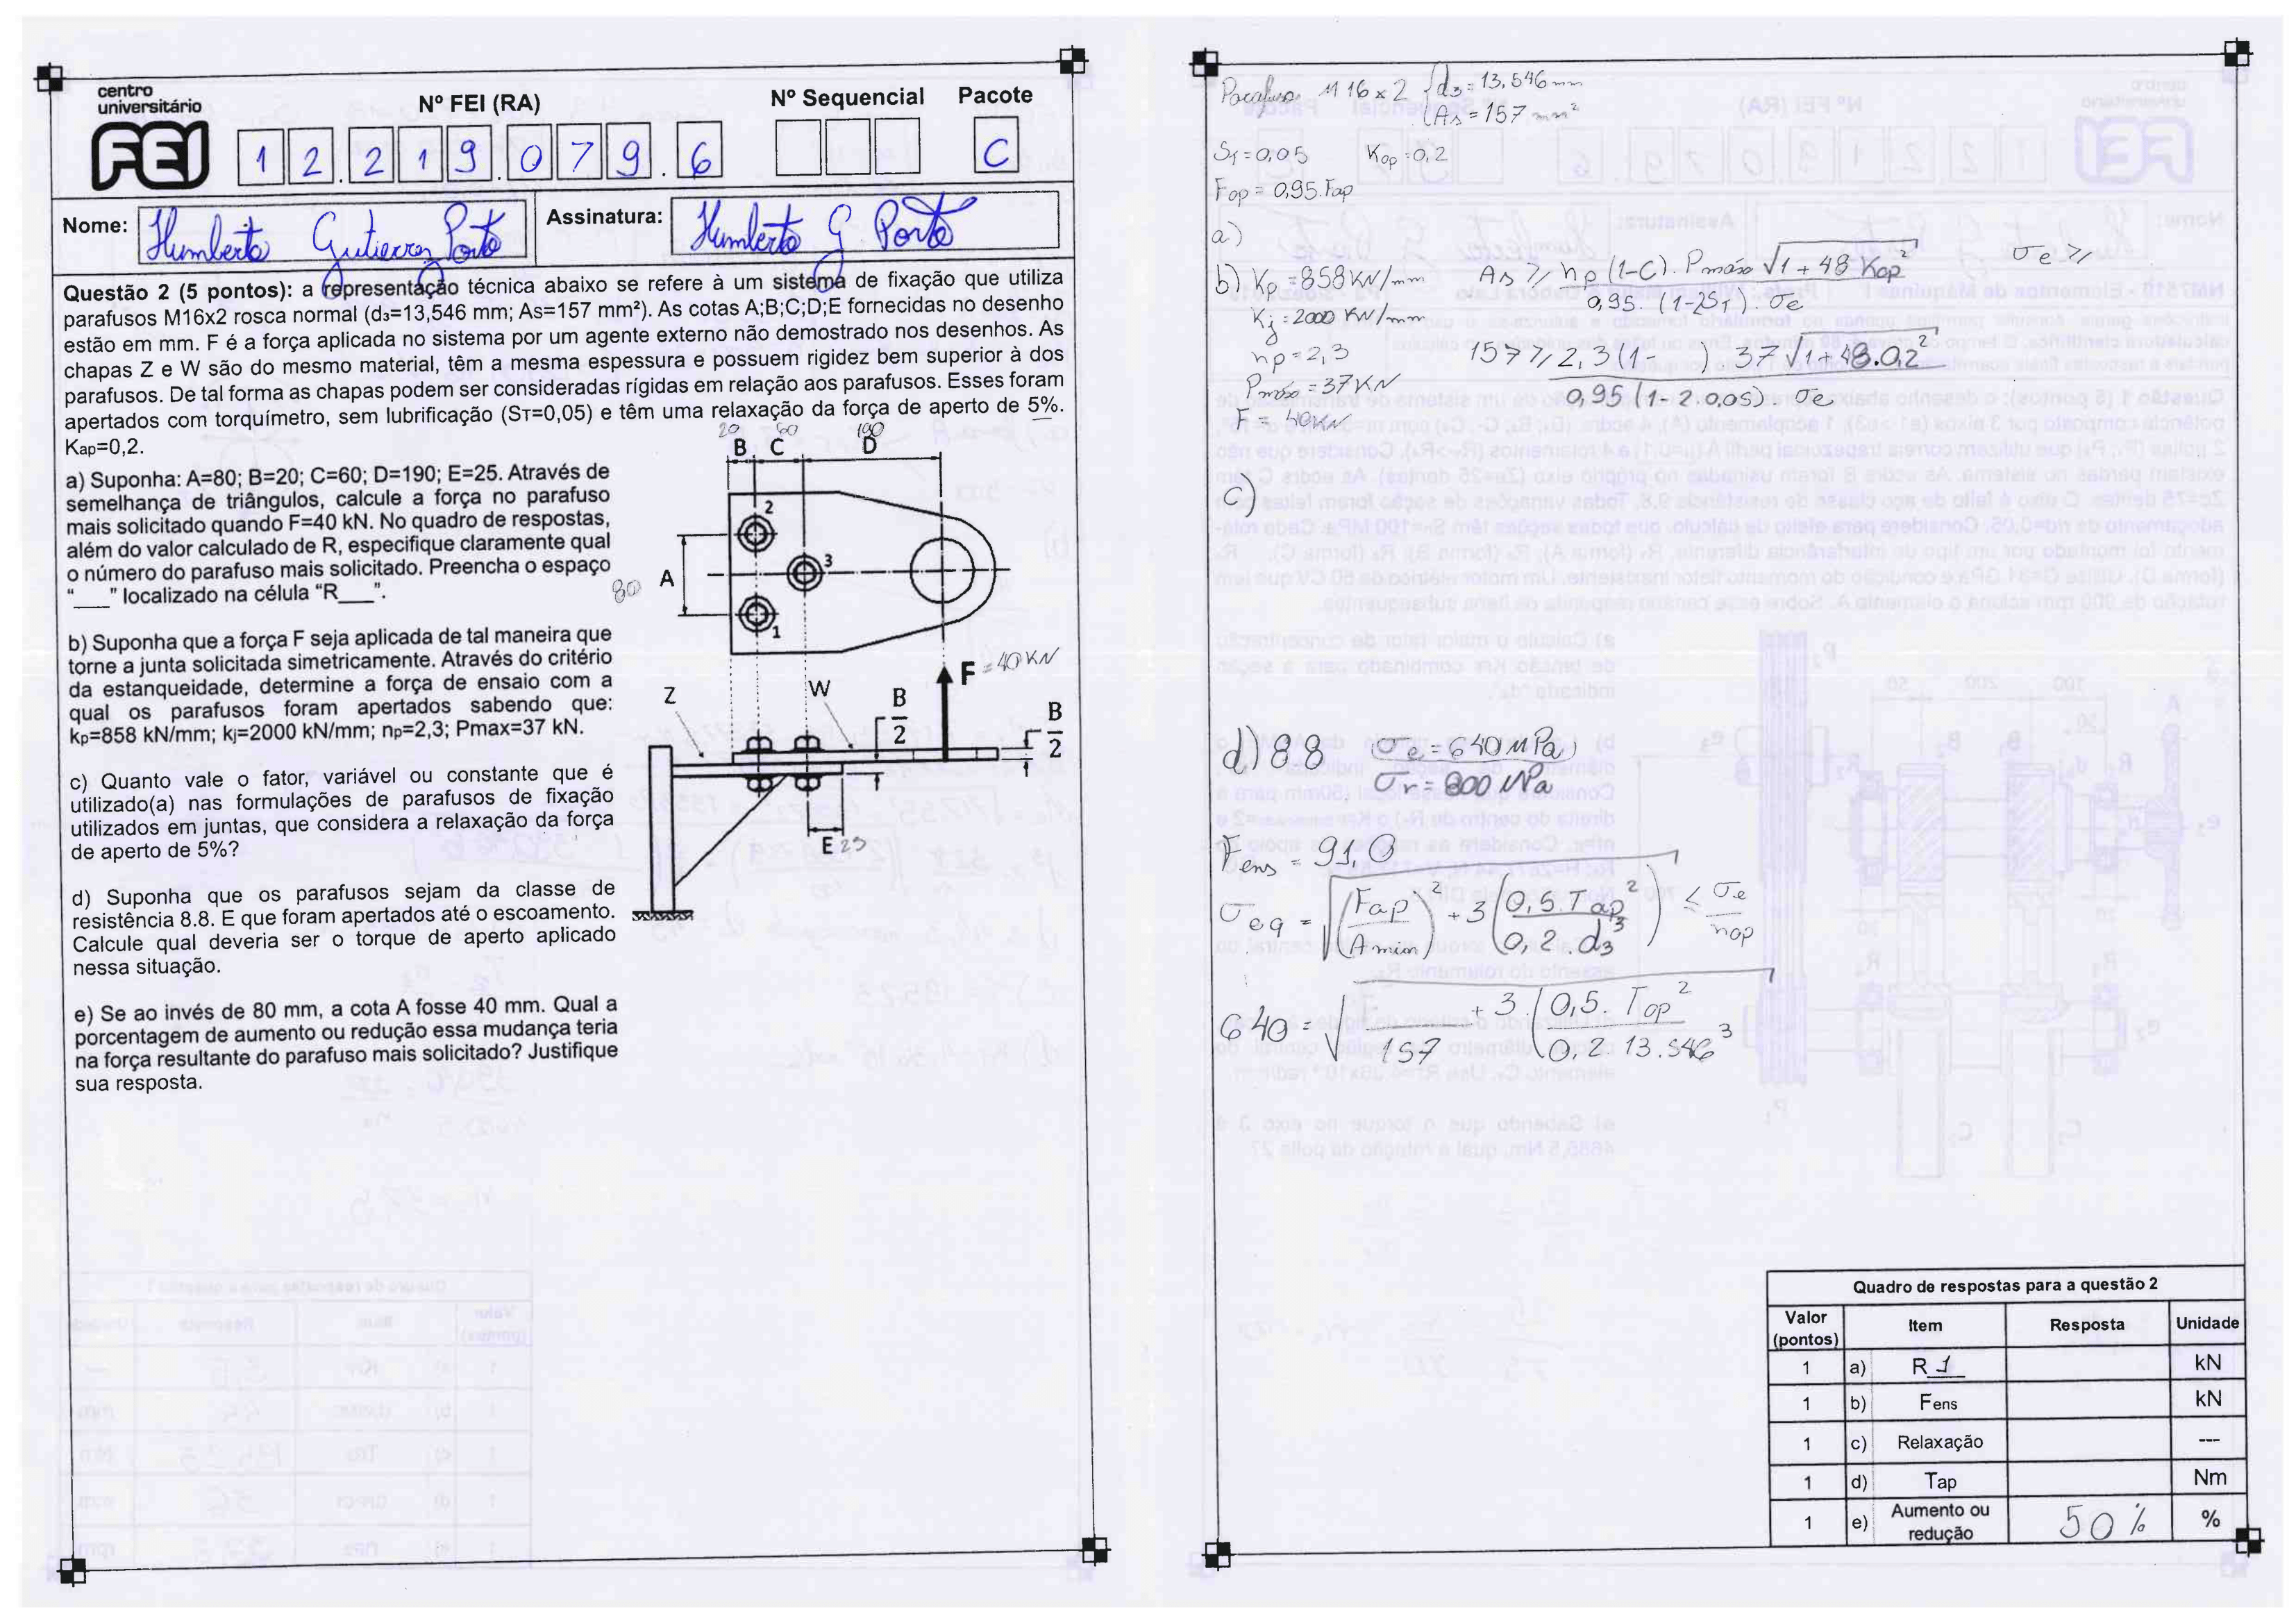 centro
universitário
FEI
Nº FEI (RA)
Nº Sequencial
Pacote
1 2. 2 1 9. 0 7 9. 6
C
Nome: Humberto Gutierrez Porto
Assinatura: Humberto G Porto
Questão 2 (5 pontos): a representação técnica abaixo se refere à um sistema de fixação que utiliza
parafusos M16x2 rosca normal (d₃=13,546 mm; As=157 mm²). As cotas A;B;C;D;E fornecidas no desenho
estão em mm. F é a força aplicada no sistema por um agente externo não demostrado nos desenhos. As
chapas Z e W são do mesmo material, têm a mesma espessura e possuem rigidez bem superior à dos
parafusos. De tal forma as chapas podem ser consideradas rígidas em relação aos parafusos. Esses foram
apertados com torquímetro, sem lubrificação (Sᴛ=0,05) e têm uma relaxação da força de aperto de 5%.
Kap=0,2.
a) Suponha: A=80; B=20; C=60; D=190; E=25. Através de
semelhança de triângulos, calcule a força no parafuso
mais solicitado quando F=40 kN. No quadro de respostas,
além do valor calculado de R, especifique claramente qual
o número do parafuso mais solicitado. Preencha o espaço
"___" localizado na célula "R___".
b) Suponha que a força F seja aplicada de tal maneira que
torne a junta solicitada simetricamente. Através do critério
da estanqueidade, determine a força de ensaio com a
qual os parafusos foram apertados sabendo que:
kp=858 kN/mm; kj=2000 kN/mm; np=2,3; Pmax=37 kN.
c) Quanto vale o fator, variável ou constante que é
utilizado(a) nas formulações de parafusos de fixação
utilizados em juntas, que considera a relaxação da força
de aperto de 5%?
d) Suponha que os parafusos sejam da classe de
resistência 8.8. E que foram apertados até o escoamento.
Calcule qual deveria ser o torque de aperto aplicado
nessa situação.
e) Se ao invés de 80 mm, a cota A fosse 40 mm. Qual a
porcentagem de aumento ou redução essa mudança teria
na força resultante do parafuso mais solicitado? Justifique
sua resposta.
20 60 190
B C D
2
3
1
80 A
F = 40 KN
Z
W
B/2
B/2
E 25
Parafuso M 16 x 2 { d₃ = 13,546 mm
As = 157 mm²
St = 0,05 Kap = 0,2
Fop = 0,95.Fap
a)
b) Kp = 858 KN/mm
As ≥ np (1-C). Pmáx √(1 + 48 Kap²) / 0,95. (1-2St). σe
σe ≥
Kj = 2000 KN/mm
np = 2,3
157 ≥ 2,3 (1-    ) 37 √(1+48.0,2²) / 0,95 (1-2.0,05). σe
Pmáx = 37 KN
F = 40KN
c)
d) 88 σe = 640 MPa
σr = 800 MPa
Fens = 91,0
σeq = √((Fap/Amin)² + 3 (0,5.Tap/0,2.d₃³)²) ≤ σe/nap
640 = √(    /157 + 3.(0,5. Tap/0,2 13.546³)²)
Quadro de respostas para a questão 2
Valor (pontos) Item Resposta Unidade
1 a) R 1 kN
1 b) Fens kN
1 c) Relaxação ---
1 d) Tap Nm
1 e) Aumento ou redução 50 % %